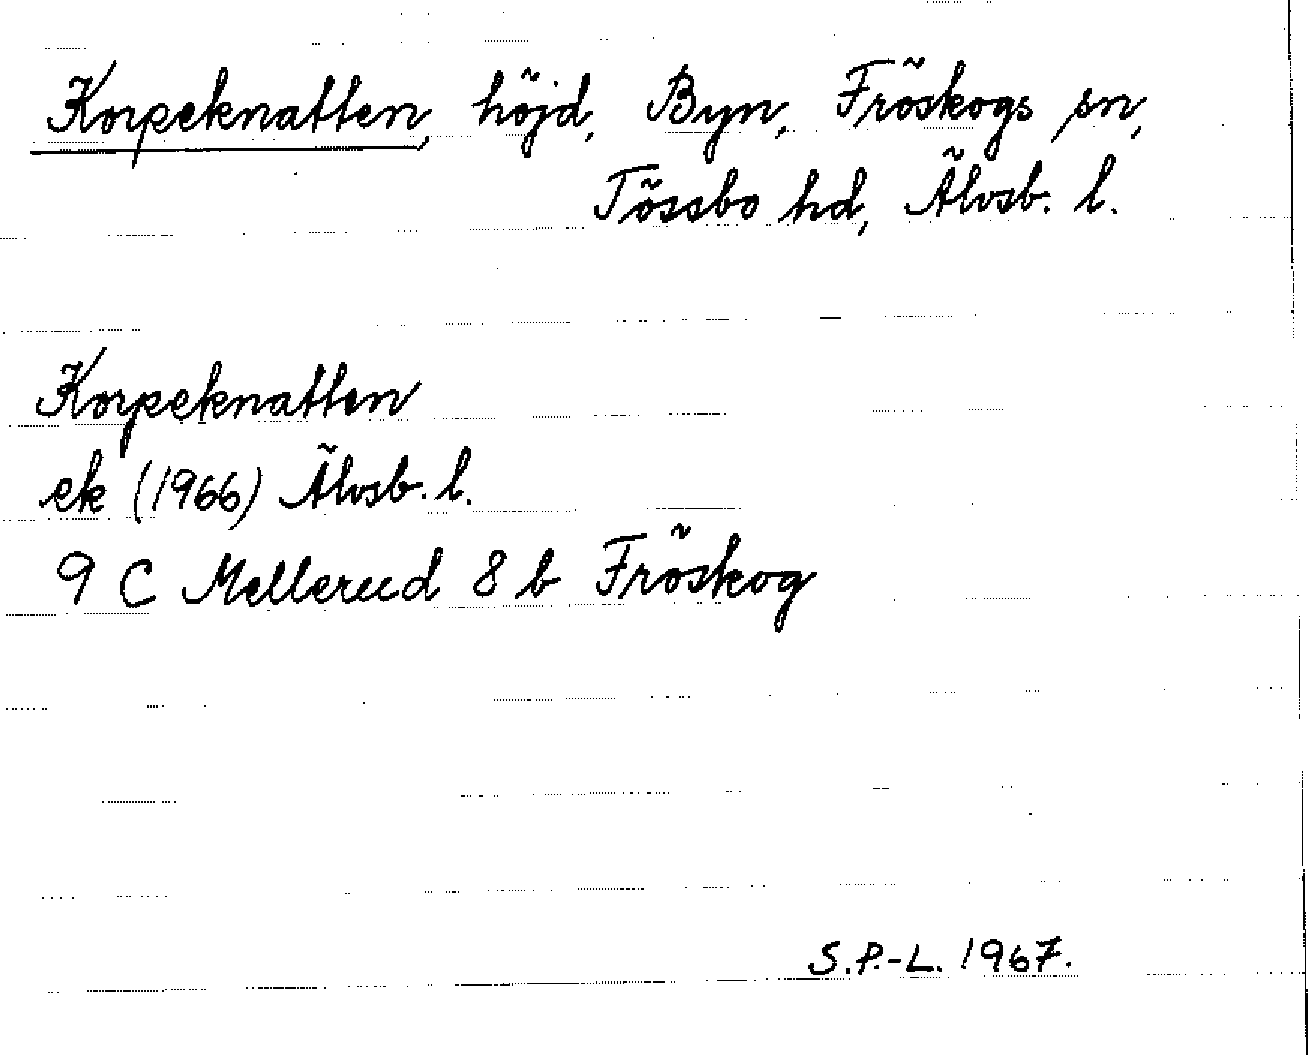 Korpeknatten, höjd, Byn, Fröskogs sn,
Tössbo hd, Älvsb. l.
Korpeknatten
ek (1966) Älvsb. l.
9 C Mellerud 8 b Fröskog
S.P.-L. 1967.